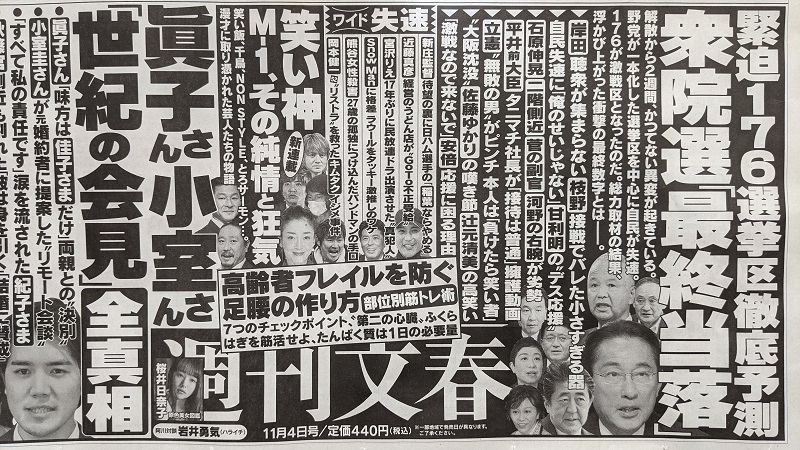 緊迫176選挙区徹底予測
衆院選「最終当落」
解散から2週間、かつてない異変が起きている。
野党が一本化した選挙区を中心に自民が失速。
176が激戦区となったのだ。総力取材の結果、
浮かび上がった衝撃の最終数字とは――。
岸田 聴衆が集まらない 枝野 接戦でバレた小さすぎる器
自民失速に「俺のせいじゃない」甘利明の“デス応援”
石原伸晃 二階側近 菅の副官 河野の右腕が劣勢
平井前大臣 タニマチ社長が「接待は普通」擁護動画
立憲“細敗の男”がピンチ 本人は「負けたら笑い者」
“大阪沈没”佐藤ゆかりの嘆き節 辻元清美の高笑い
「激戦なので来ないで」安倍応援に困る理由
ワイド 失速
新庄監督待望の裏に日ハム選手の「稲葉ならやめる」
近藤真彦 経営のうどん店が“GoTo不正受給”
宮沢りえ17年ぶりに民放連ドラ出演させた“真犯人”
SnowMAnに格差 ラウールをタッキー激推しの
熊谷女性殺害 27歳の孤独につけ込んだバンドマンの手口
岡本健一“リストラ”を救ったキムタクイジメ事件
笑い神
M-1、その純情と狂気
新連載
笑い飯、千鳥、NON STYLE、とろサーモン…。
漫才に取り憑かれた芸人たちの物語
高齢者フレイルを防ぐ
足腰の作り方 部位別筋トレ術
7つのチェックポイント、“第二の心臓”ふくら
はぎを筋活せよ、たんぱく質は1日の必要量
眞子さん小室さん
「世紀の会見」全真相
眞子さん「味方は佳子さまだけ」両親との“決別”
小室圭さんが元婚約者に提案した“リモート会談”
「すべて私の責任です」涙を流された紀子さま
週刊文春
桜井日奈子
原色美女図鑑
阿川対談 岩井勇気(ハライチ)
11月4日号/定価440円(税込)
※一部地域で発売日が異なります。
ご了承ください。